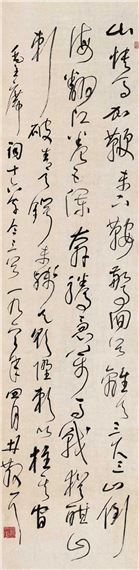 山快馬加鞭未下鞍驚回首離天三尺三山倒
海翻江卷巨瀾奔騰急万馬戰猶酣山
刺破青天鍔未殘天欲墮賴以拄其間
毛主席詞十六字令三首一九六年四月林散之